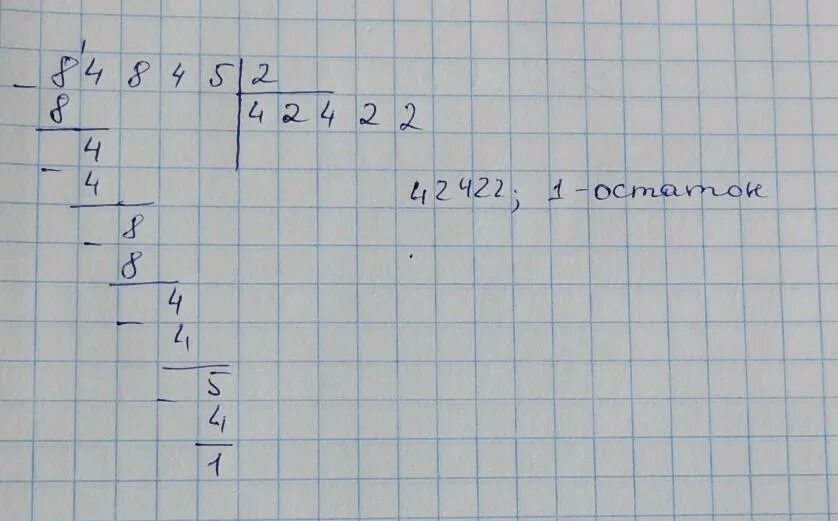 84845 2
8 42422
4
4 42422; 1-остаток
8
8
4
4
5
4
1